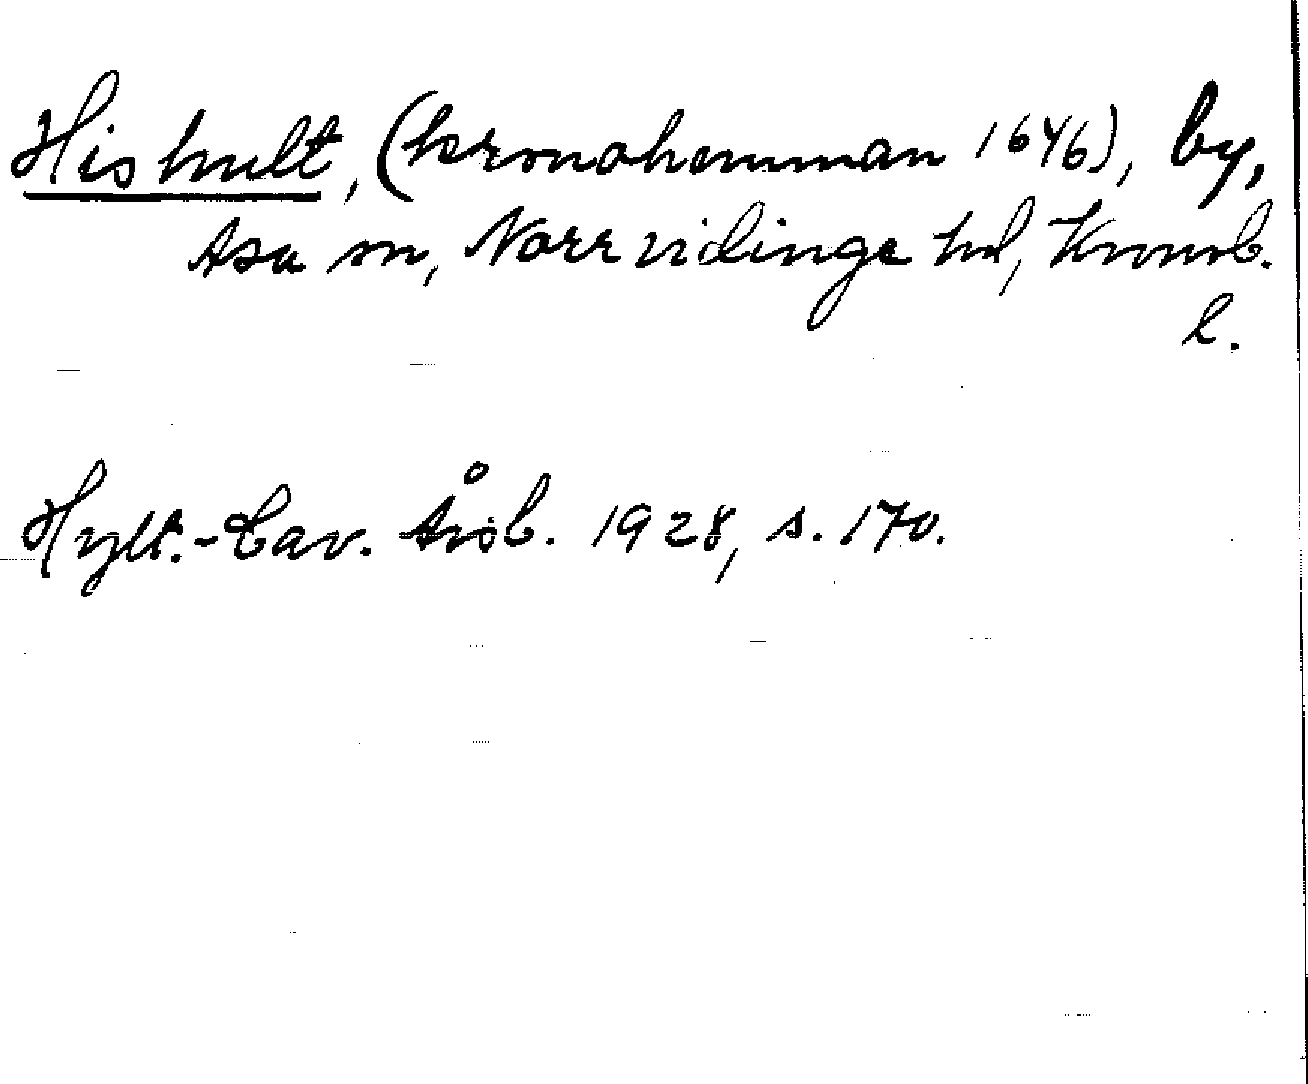 Hishult, (kronohemman 1646), by,
Asa sn, Norrvidinge hd, Kronob.
l.
Hylt.-Cav. Årsb. 1928, s. 170.